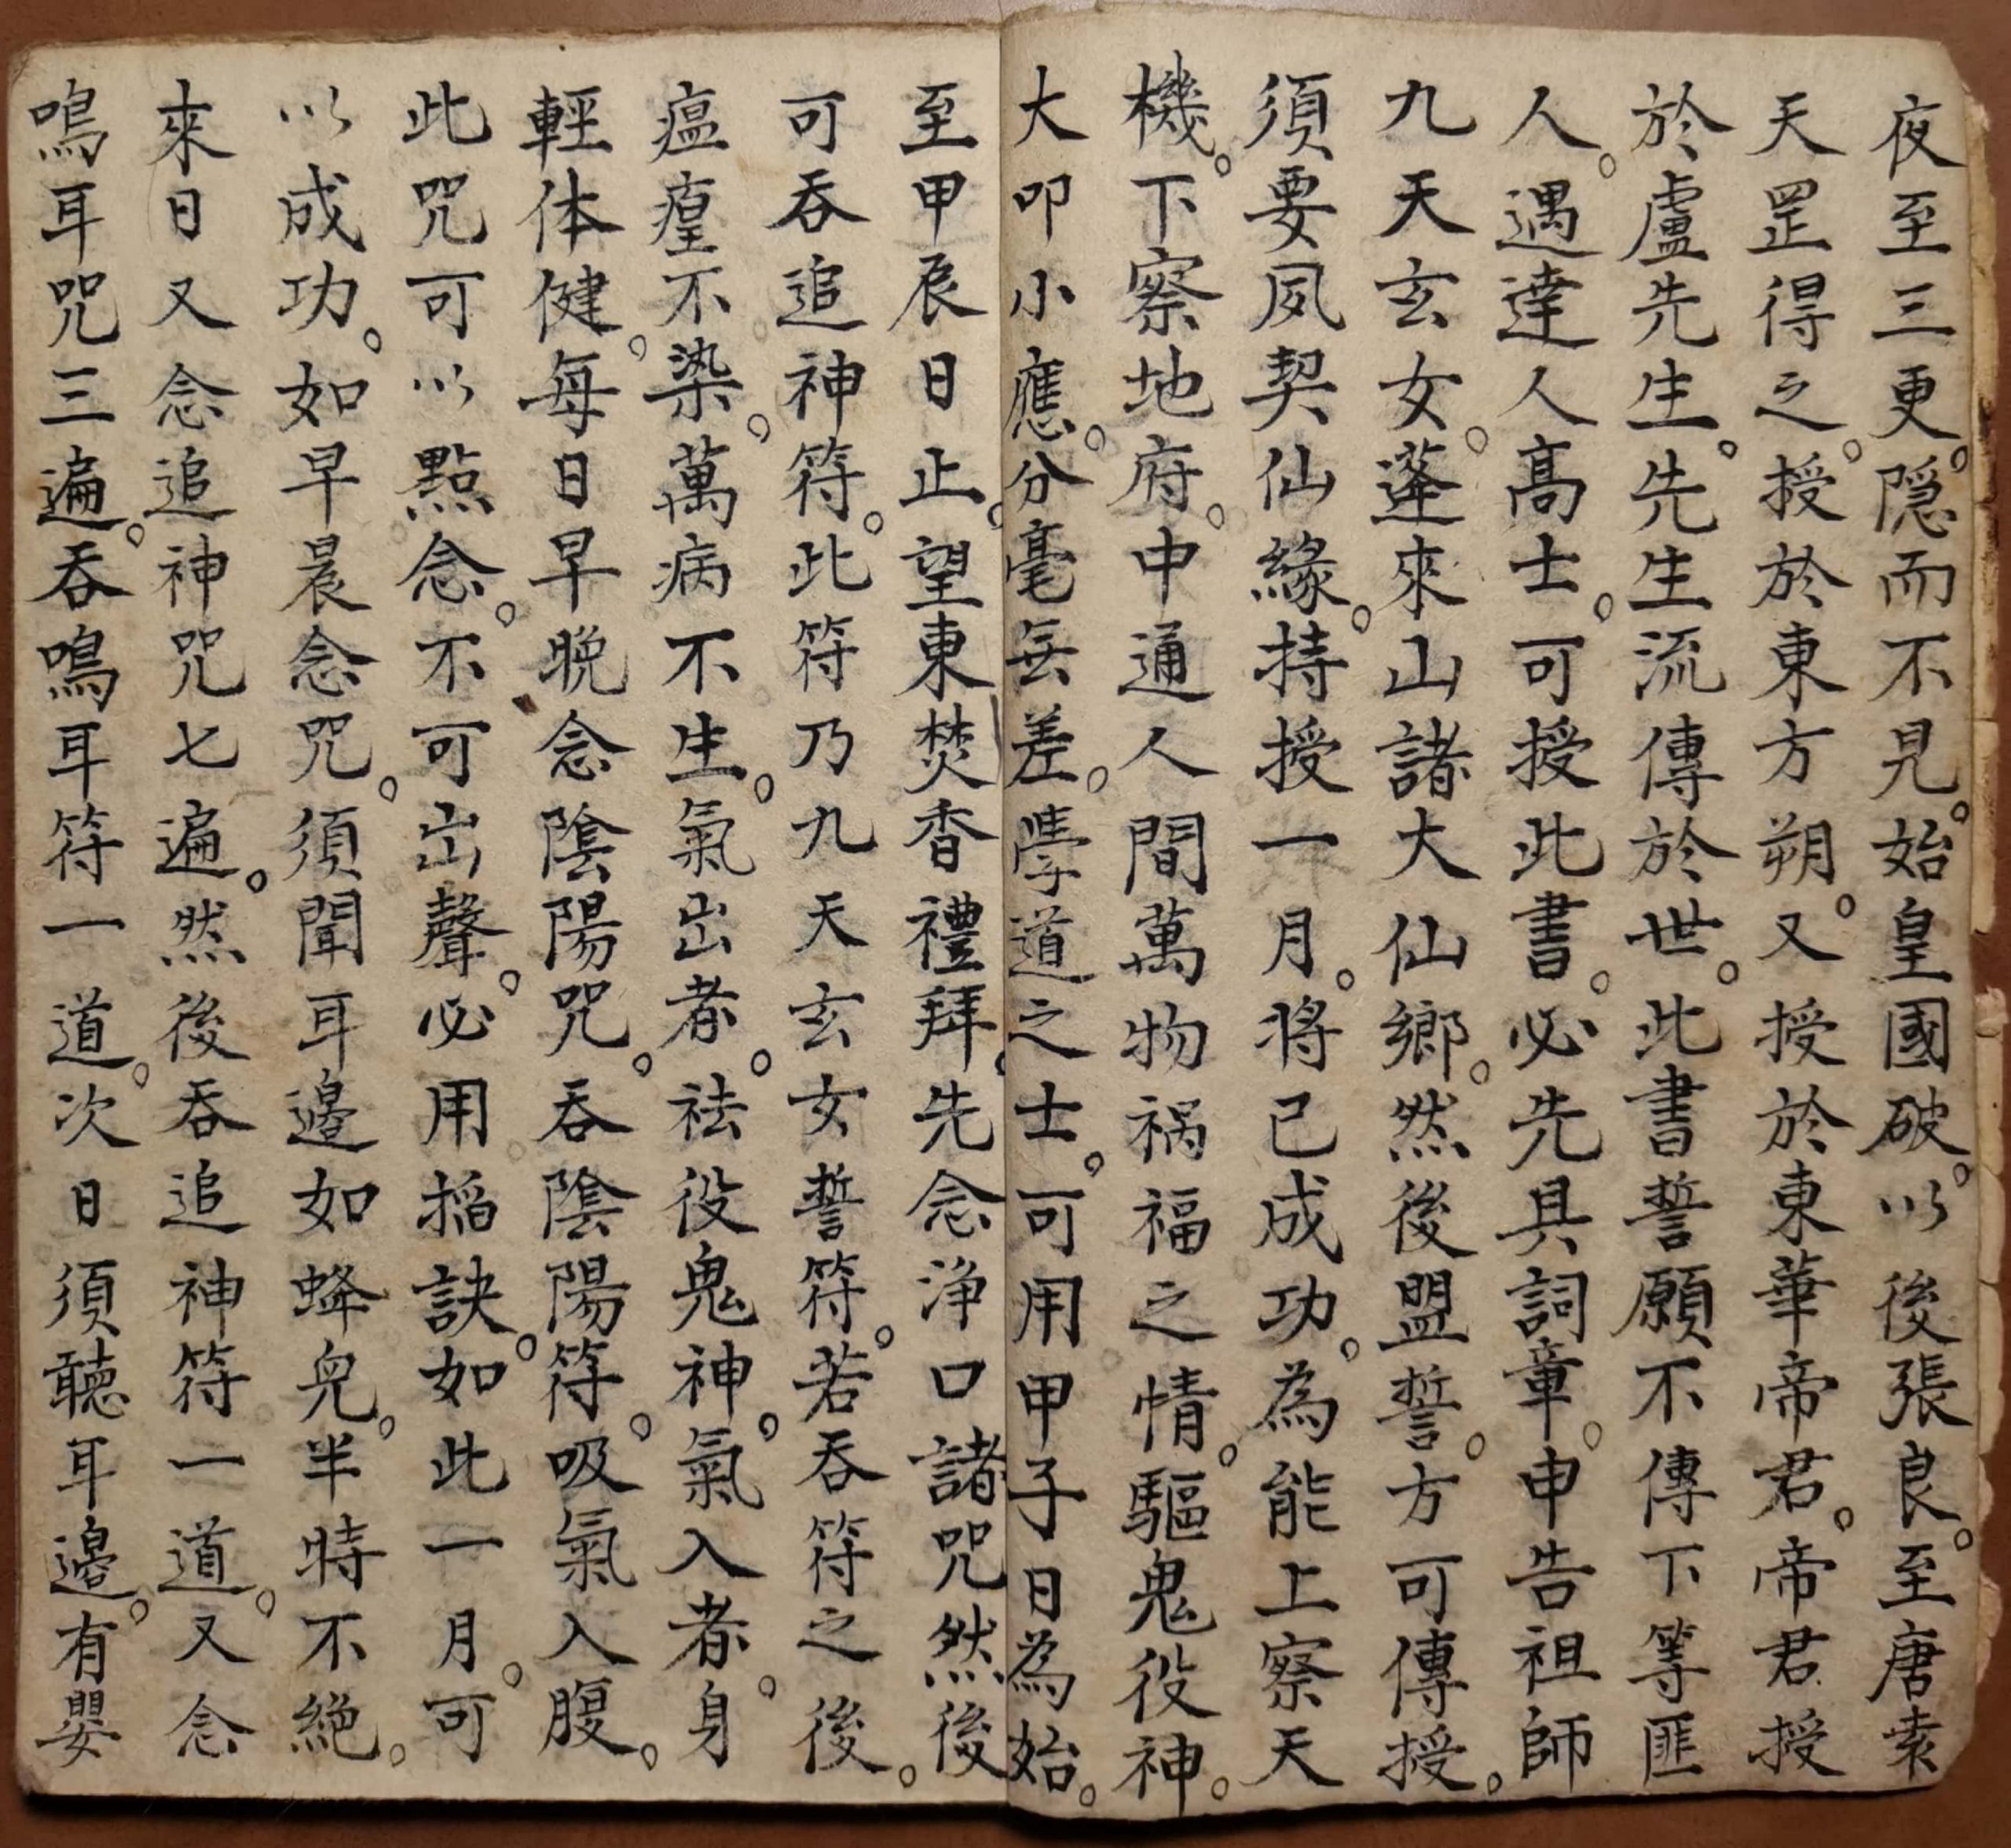 夜至三更。隱而不見。始皇國破。以後張良。至唐索
天罡得之。授於東方朔。又授於東華帝君。帝君授
於盧先生。先生流傳於世。此書誓願不傳下等匪
人。遇達人高士。可授此書。必先具詞章。申告祖師
九天玄女。蓬來山諸大仙鄉。然後盟誓。方可傳授。
須要夙契仙緣。持授一月。將已成功。為能上察天
機。下察地府。中通人間萬物禍福之情。驅鬼役神。
大叩小應。分毫無差。學道之士。可用甲子日為始。
至甲辰日止。望東焚香禮拜。先念淨口諸咒然後
可吞追神符。此符乃九天玄女誓符。若吞符之後。
瘟瘟不染。萬病不生。氣出者。祛役鬼神。氣入者。身
輕体健。每日早晚念陰陽咒。吞陰陽符。吸氣入腹。
此咒可以點念。不可出聲。必用搯訣。如此一月。可
以成功。如早晨念咒。須聞耳邊如蜂皃。半時不絕。
來日又念追神咒七遍。然後吞追神符一道。又念
鳴耳咒三遍。吞鳴耳符一道。次日須聽耳邊。有嬰